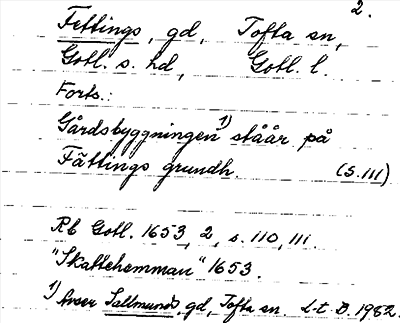 2.
Fettings, gd, Tofta sn,
Gotl. s. hd, Gotl. l.
Forts.:
Gårdsbyggningen 1) ståår på
Fättings grundh. (s. 111)
Rb Gotl. 1653, 2, s. 110, 111.
"Skattehemman" 1653.
1) Avser Sallmunds, gd, Tofta sn. L.t. O. 1982.